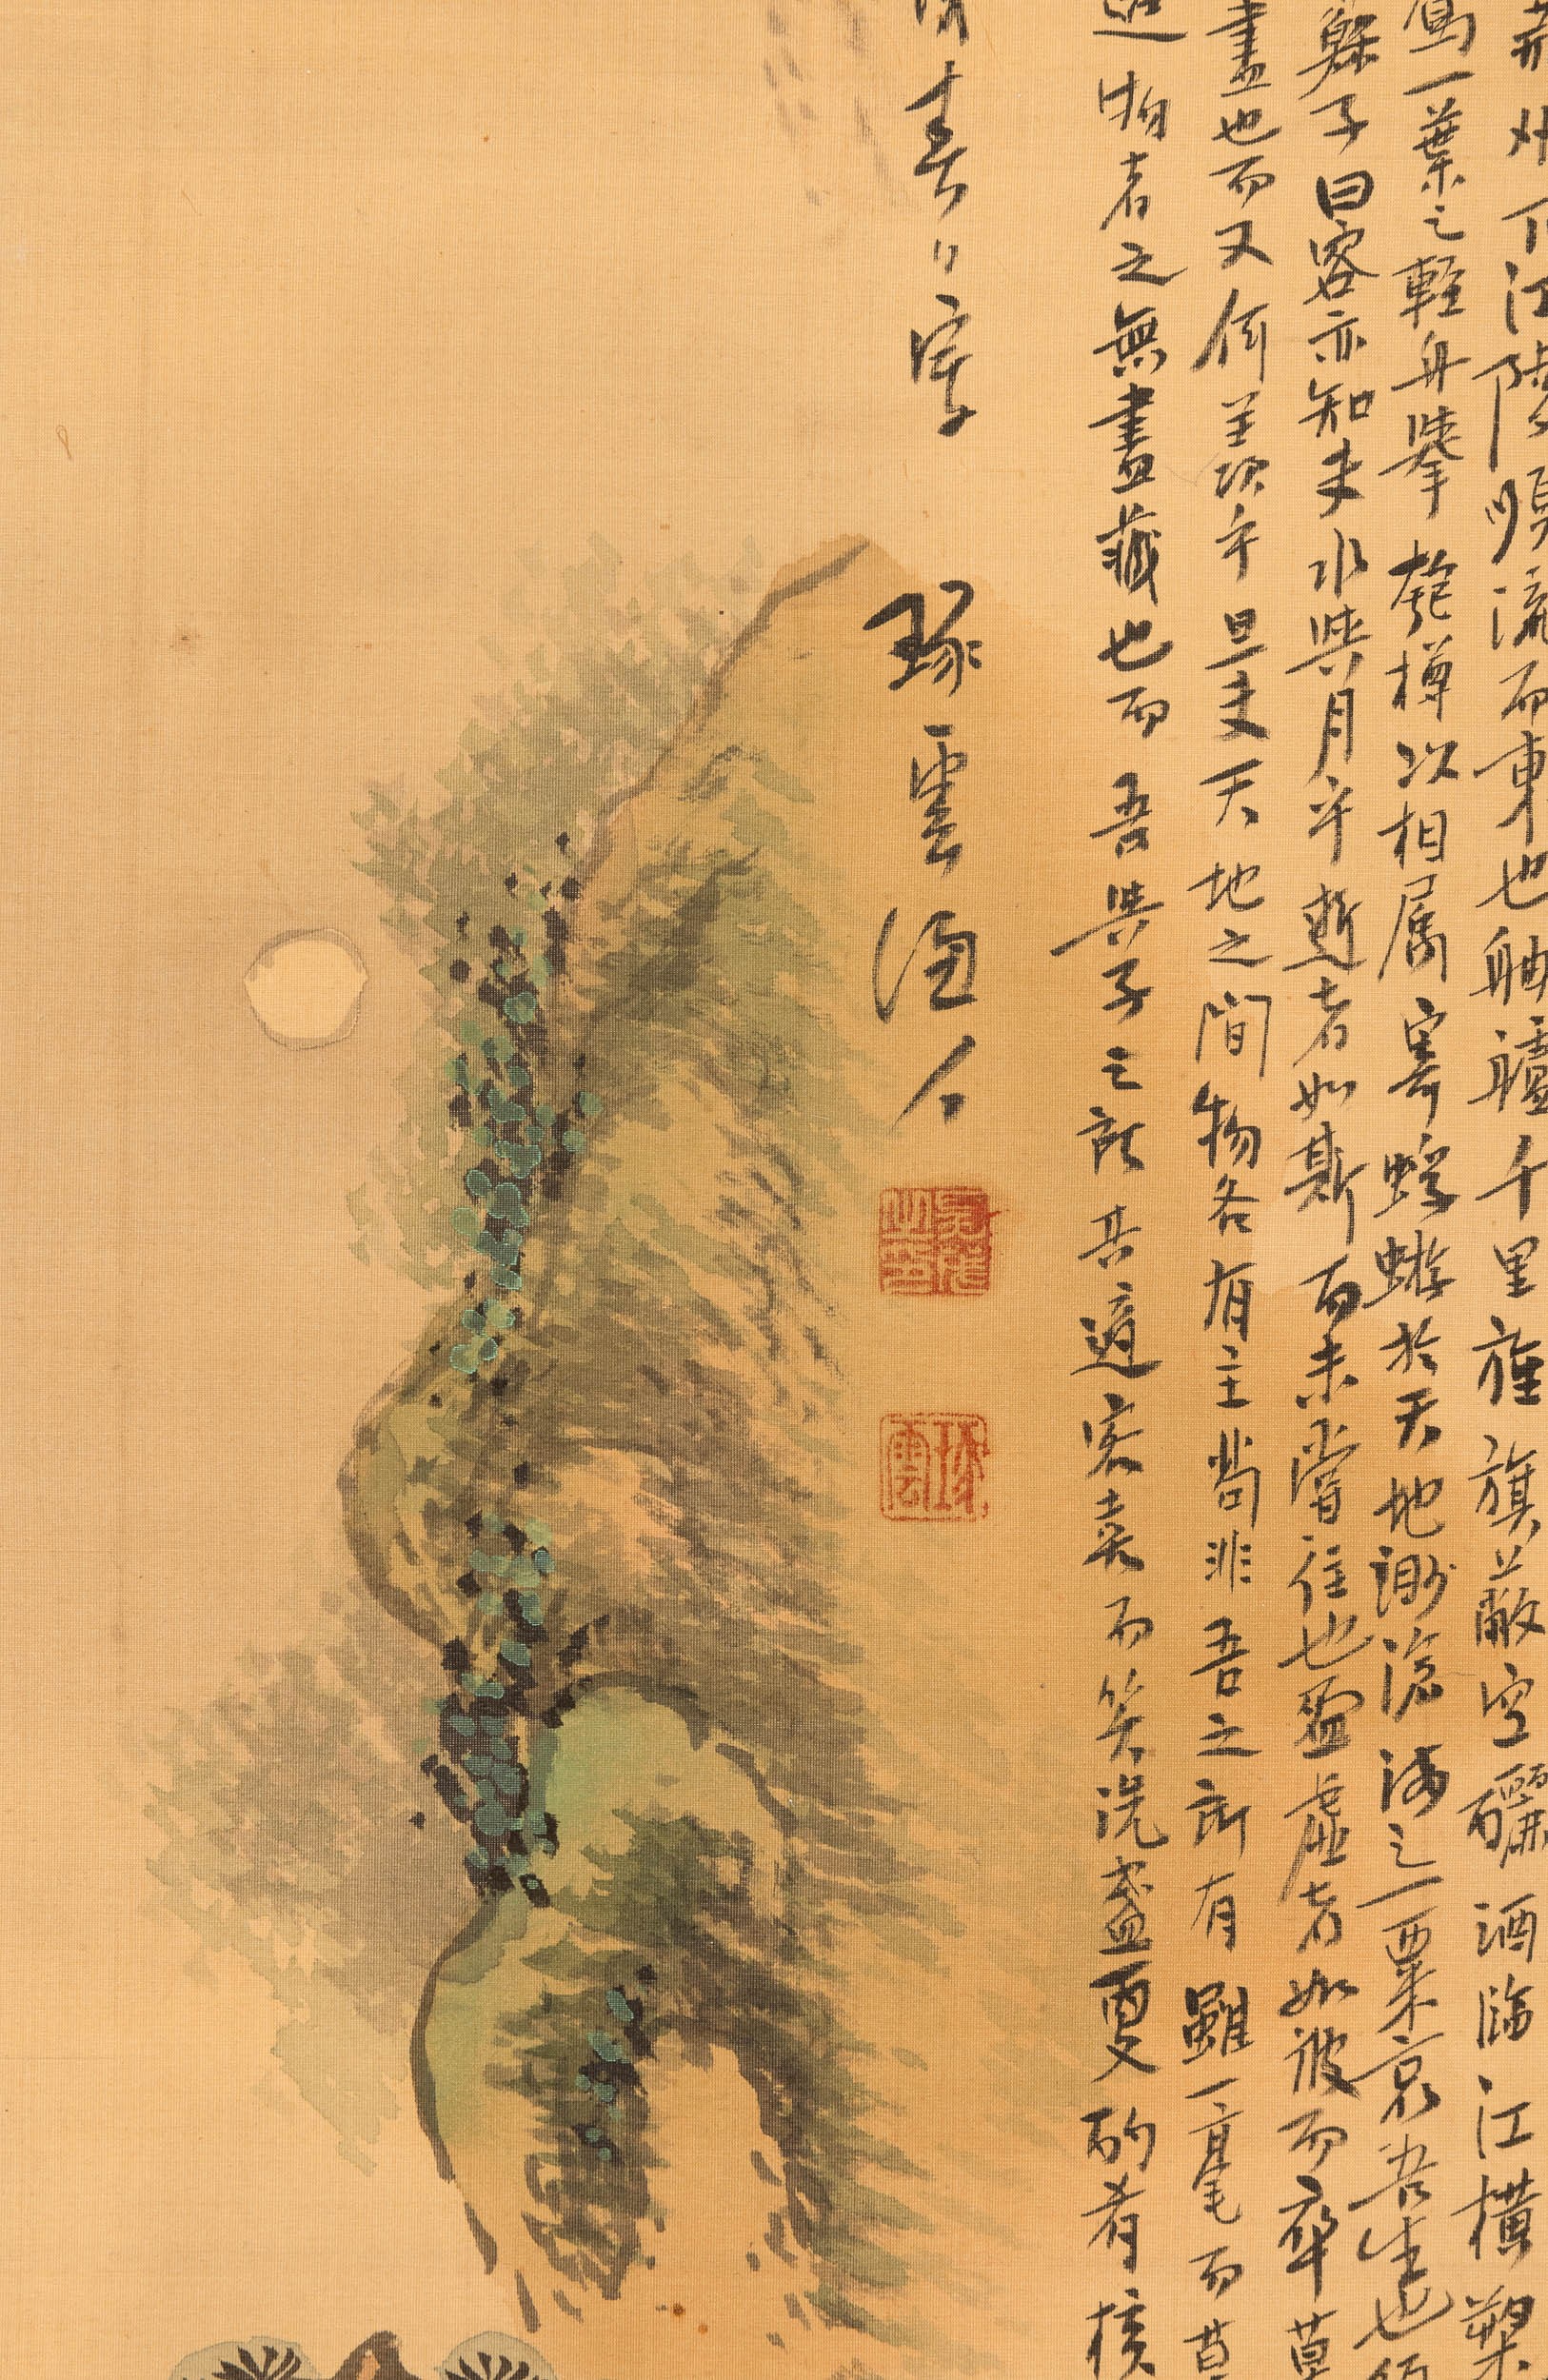 荊州下江陵順流而東也舳艫千里旌旗蔽空釃酒臨江橫槊
駕一葉之輕舟擧匏樽以相属寄蜉蝣於天地渺滄海之一粟哀吾生也
蘇子曰客亦知夫水與月乎逝者如斯而未嘗往也盈虛者如彼而卒莫
盡也而又何羨乎且夫天地之間物各有主苟非吾之所有雖一毫而莫
造物者之無盡藏也而吾與子之所共適客喜而笑洗盞更酌肴核
春日寫 琢雲人
琢雲